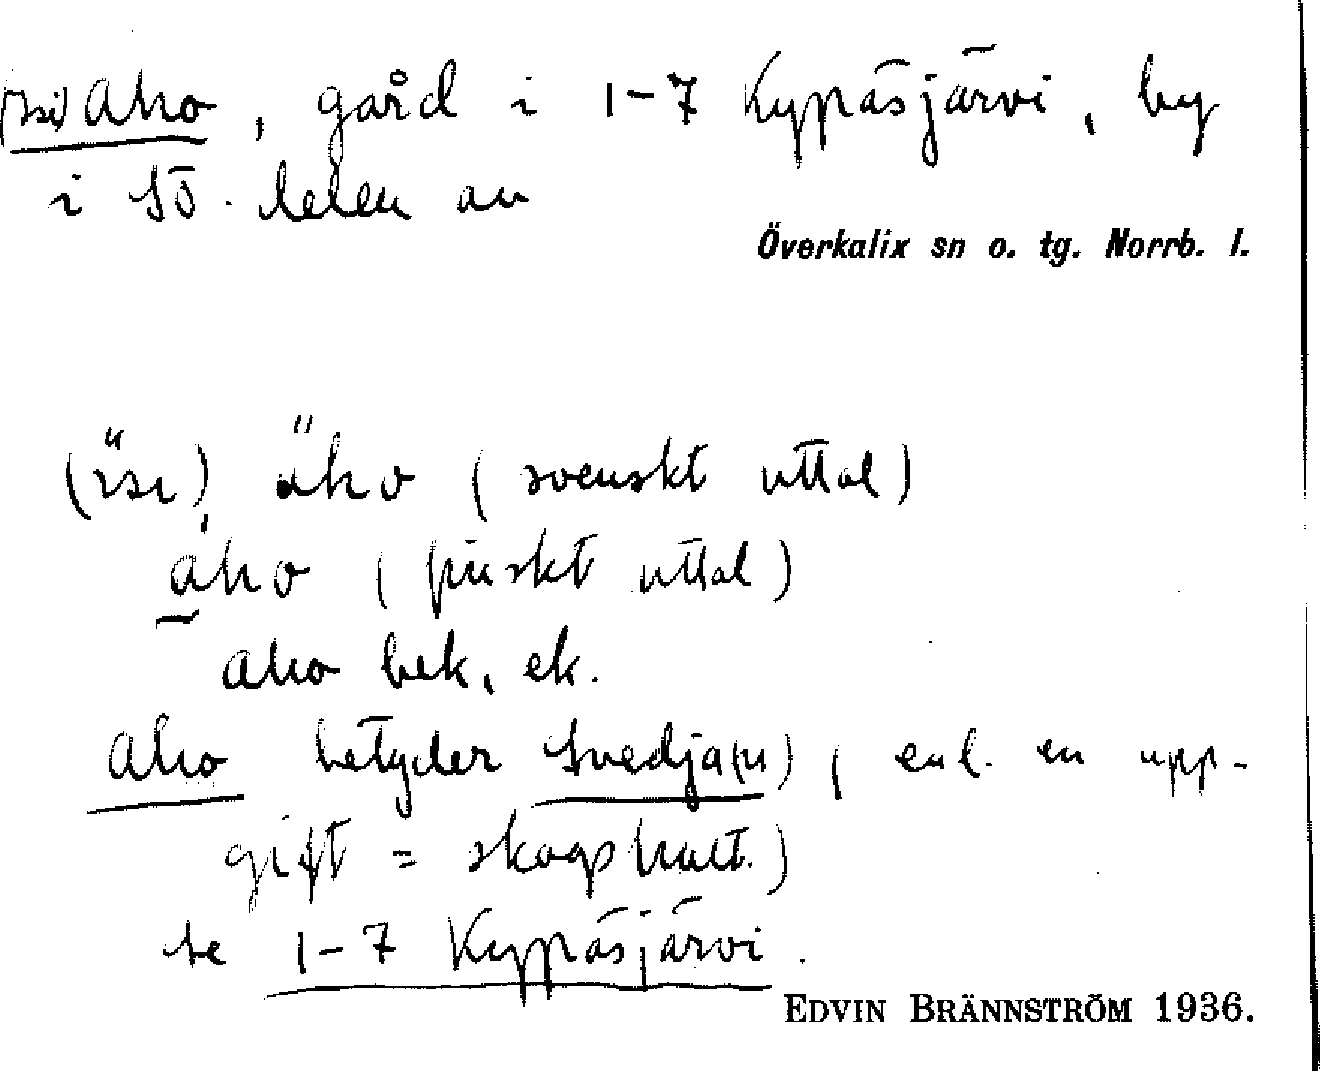 Aho, gård i 1-7 Kypäsjärvi, by
i SÖ. delen av
Överkalix sn o. tg. Norrb. l.
äho (svenskt uttal)
áho (finskt uttal)
Aho bek. ek.
Aho betyder Svedja(n) (enl. en upp-
gift = skogshult.)
Se 1-7 Kypäsjärvi.
EDVIN BRÄNNSTRÖM 1936.